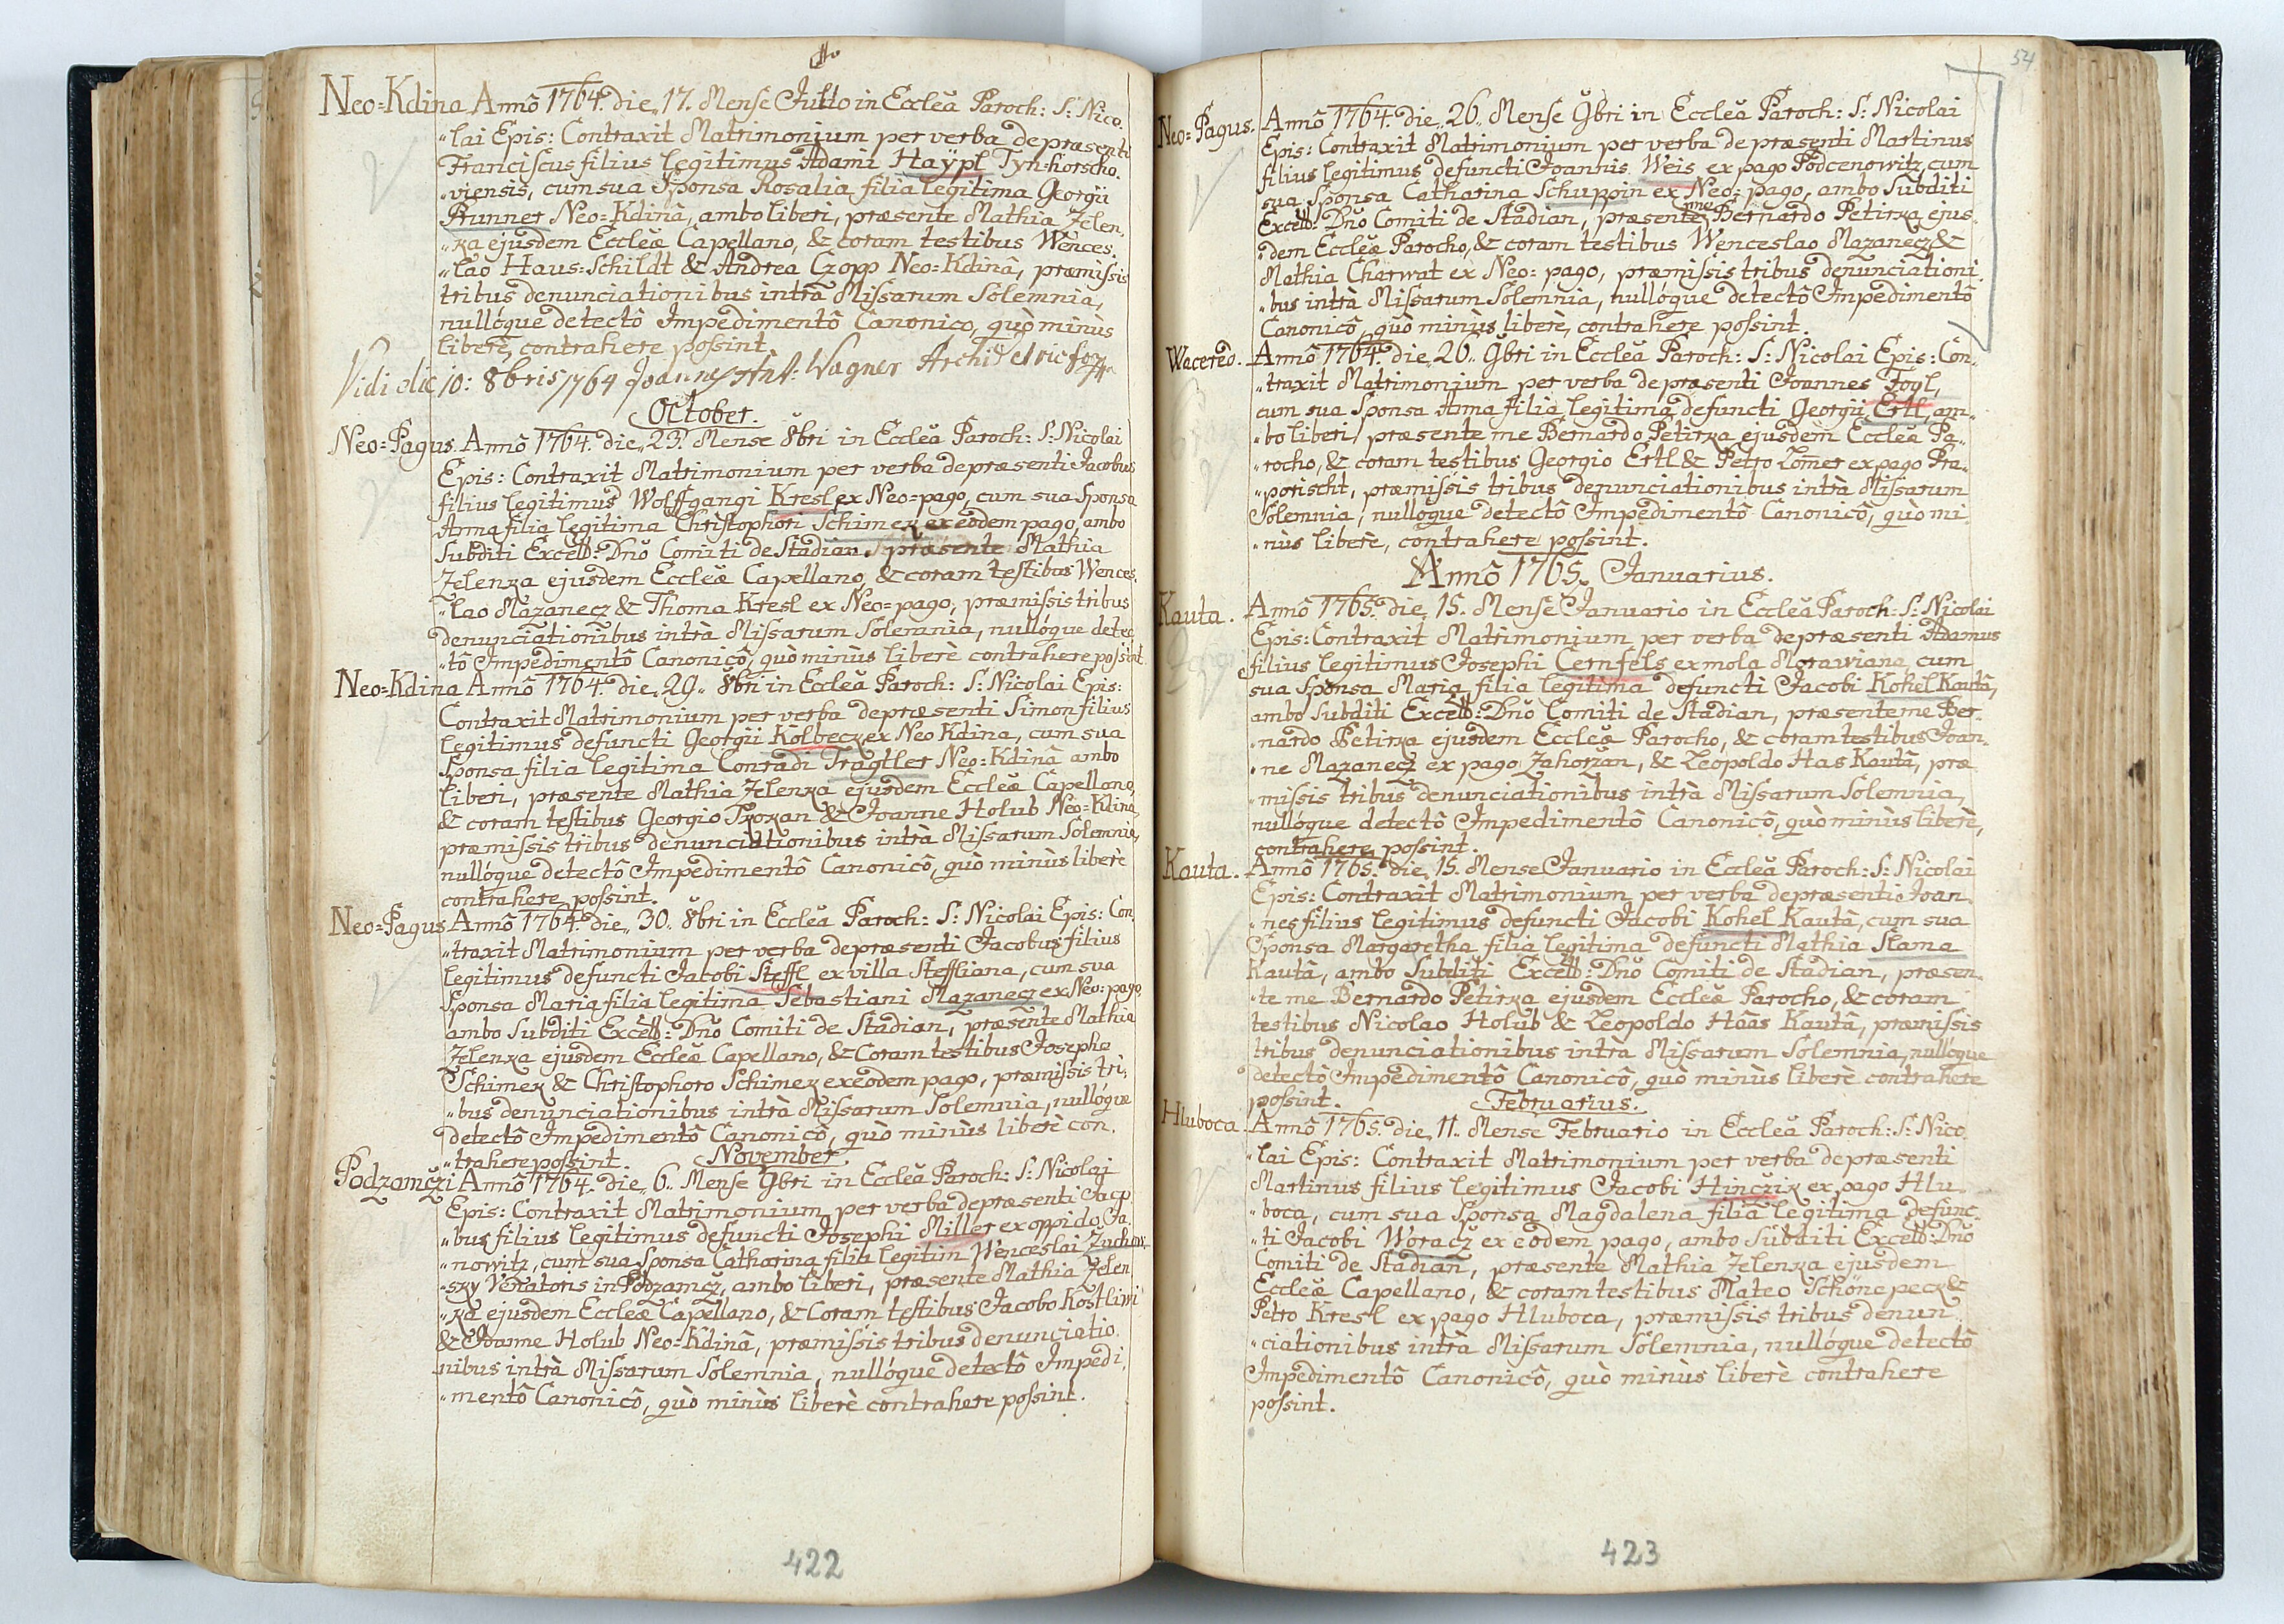 Neo=Kdina Annô 1764. die 17. Mense Julio in Eccleâ Paroch: S: Nico,
"lai Epis: Contraxit Matrimonium per verba de præsenti
Franciscus filius legitimus Adami Haÿpl Tyn=horscho,
"viensis, cum sua Sponsa Rosalia filia legitima Georgii
Brunner Neo=Kdinâ, ambo liberi, præsente Mathia Zelen,
"ka ejusdem Eccleæ Capellano, & coram testibus Wences,
"lao Haus=Schildt & Andrea Czopp Neo=Kdinâ, præmissis
tribus denunciationibus intrà Missarum Solemnia,
nullóque detectô Impedimentô Canonico, quò minùs
liberè contrahere possint.
Vidi die 10: 8bris 1764 Joannes Ant: Wagner
October.
Neo=Pagus. Annô 1764. die 23. Mense 8bri in Eccleâ Paroch: S: Nicolai
Epis: Contraxit Matrimonium per verba de præsenti Jacobus
filius legitimus Wolffgangi Kresl ex Neo=pago, cum sua Sponsa
Anna filia legitima Christophori Schimek ex eodem pago, ambo
Subditi Excell: Dnô Comiti de Stadian, præsente Mathia
Zelenka ejusdem Eccleæ Capellano, & coram testibus Wences,
"lao Mazanecz & Thoma Kresl ex Neo=pago, præmissis tribus
denunciationibus intrà Missarum Solemnia, nullóque detec,
"tô Impedimentô Canonicô, quò minùs liberè contrahere possint.
Neo=Kdina Annô 1764. die 29. 8bri in Eccleâ Paroch: S: Nicolai Epis:
Contraxit Matrimonium per verba de præsenti Simon filius
legitimus defuncti Georgii Kolbeck ex Neo Kdina, cum sua
Sponsa filia legitima Conradi Tragtler Neo=Kdinâ ambo
liberi, præsente Mathia Zelenka ejusdem Eccleæ Capellano,
& coram testibus Georgio & Joanne Holub Neo=Kdina,
præmissis tribus denunciationibus intrà Missarum Solemnia,
nullóque detectô Impedimentô Canonicô, quò minùs liberè
contrahere possint.
Neo=Pagus Annô 1764. die 30. 8bri in Eccleâ Paroch: S: Nicolai Epis: Con,
"traxit Matrimonium per verba de præsenti Jacobus filius
legitimus defuncti Jacobi Steffl ex villa Steffliana, cum sua
Sponsa Maria filia legitima Sebastiani Mazanecz ex Neo=pago,
ambo Subditi Excell: Dnô Comiti de Stadian, præsente Mathia
Zelenka ejusdem Eccleæ Capellano, & Coram testibus Josepho
Schimek & Christophoro Schimek ex eodem pago, præmissis tri,
"bus denunciationibus intrà Missarum Solemnia, nullóque
detectô Impedimentô Canonicô, quò minùs liberè con,
"trahere possint. November.
Podzamczi Annô 1764. die 6. Mense 9bri in Eccleâ Paroch: S: Nicolai
Epis: Contraxit Matrimonium per verba de præsenti Jaco,
"bus filius legitimus defuncti Josephi Miller ex oppido Ja,
"nowitz, cum sua Sponsa Catharina filia legitim Wenceslai
"sky Venatoris in Podzamcz, ambo liberi, præsente Mathia Zelen
"ka ejusdem Eccleæ Capellano, & Coram testibus Jacobo Kostliwi
& Joanne Holub Neo=Kdinâ, præmissis tribus denunciatio,
nibus intrà Missarum Solemnia, nullóque detectô Impedi,
"mentô Canonicô, quò minùs liberè contrahere possint.
422
54
Neo=Pagus. Annô 1764. die 26. Mense 9bri in Eccleâ Paroch: S: Nicolai
Epis: Contraxit Matrimonium per verba de præsenti Martinus
filius legitimus defuncti Joannis Weis ex pago Podcenowitz, cum
sua Sponsa Catharina Schuppin ex Neo=pago, ambo Subditi
Excell: Dnô Comiti de Stadian, præsente me Bernardo Petirka ejus,
"dem Eccleæ Parocho, & coram testibus Wenceslao Mazanecz &
Mathia Charwat ex Neo=pago, præmissis tribus denunciationi,
"bus intrà Missarum Solemnia, nullóque detectô Impedimentô
Canonicô, quò minùs liberè, contrahere possint.
Wacerẽo. Annô 1764. die 26. 9bri in Eccleâ Paroch: S: Nicolai Epis: Con,
"traxit Matrimonium per verba de præsenti Joannes Fogl,
cum sua Sponsa Anna filia legitima defuncti Georgii Ertl, am,
"bo liberi, præsente me Bernardo Petirka ejusdem Eccleæ Pa,
"rocho, & coram testibus Georgio Ertl & Petro Zom̃er ex pago Pra,
"porischt, præmissis tribus denunciationibus intrà Missarum
Solemnia, nullóque detectô Impedimentô Canonicô, quò mi,
"nùs liberè, contrahere possint.
Annô 1765. Januarius.
Kauta. Annô 1765. die 15. Mense Januario in Eccleâ Paroch: S: Nicolai
Epis: Contraxit Matrimonium per verba de præsenti Adamus
filius legitimus Josephi Cernfels ex mola Morawiana, cum
sua Sponsa Maria filia legitima defuncti Jacobi Kohel Kautâ,
ambo Subditi Excell: Dnô Comiti de Stadian, præsente me Ber,
"nardo Petirka ejusdem Eccleæ Parocho, & coram testibus Joan,
"ne Mazanecz ex pago Zahorzan, & Leopoldo Has Kautâ, præ
"missis tribus denunciationibus intrà Missarum Solemnia,
nullóque detectô Impedimentô Canonicô, quò minùs liberè,
contrahere possint.
Kauta. Annô 1765. die 15. Mense Januario in Eccleâ Paroch: S: Nicolai
Epis: Contraxit Matrimonium per verba de præsenti Joan,
"nes filius legitimus defuncti Jacobi Kohel Kautâ, cum sua
Sponsa Margaretha filia legitima defuncti Mathia Slama
Kautâ, ambo Subditi Excell: Dnô Comiti de Stadian, præsen,
"te me Bernardo Petirka ejusdem Eccleæ Parocho, & coram
testibus Nicolao Holub & Leopoldo Hâas Kautâ, præmissis
tribus denunciationibus intrà Missarum Solemnia, nullóque
detectô Impedimentô Canonicô, quò minùs liberè contrahere
possint. Februarius.
Hluboca. Annô 1765. die 11. Mense Februario in Eccleâ Paroch: S: Nico,
"lai Epis: Contraxit Matrimonium per verba de præsenti
Martinus filius legitimus Jacobi Hinczik ex pago Hlu
"boca, cum sua Sponsa Magdalena filia legitima defunc,
"ti Jacobi Woracz ex eodem pago, ambo Subditi Excell: Dnô
Comiti de Stadian, præsente Mathia Zelenka ejusdem
Eccleæ Capellano, & coram testibus Mateo Schönepeck &
Petro Kresl ex pago Hluboca, præmissis tribus denun,
"ciationibus intrà Missarum Solemnia, nullóque detectô
Impedimentô Canonicô, quò minùs liberè contrahere
possint.
423